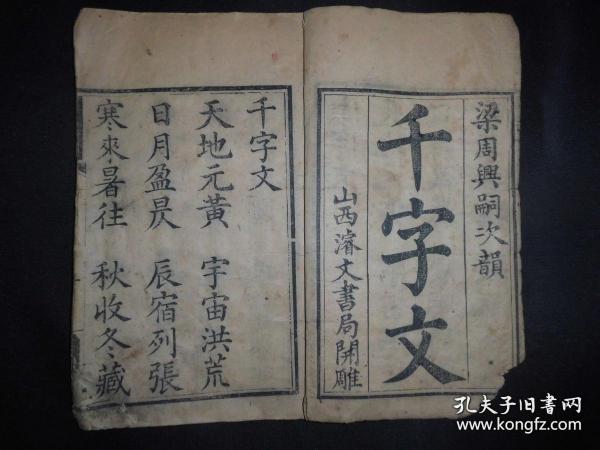 梁周興嗣次韻
千字文
山西濬文書局開雕
千字文
天地元黃 宇宙洪荒
日月盈昃 辰宿列張
寒來暑往 秋收冬藏
孔夫子旧书网
www.kongfz.com